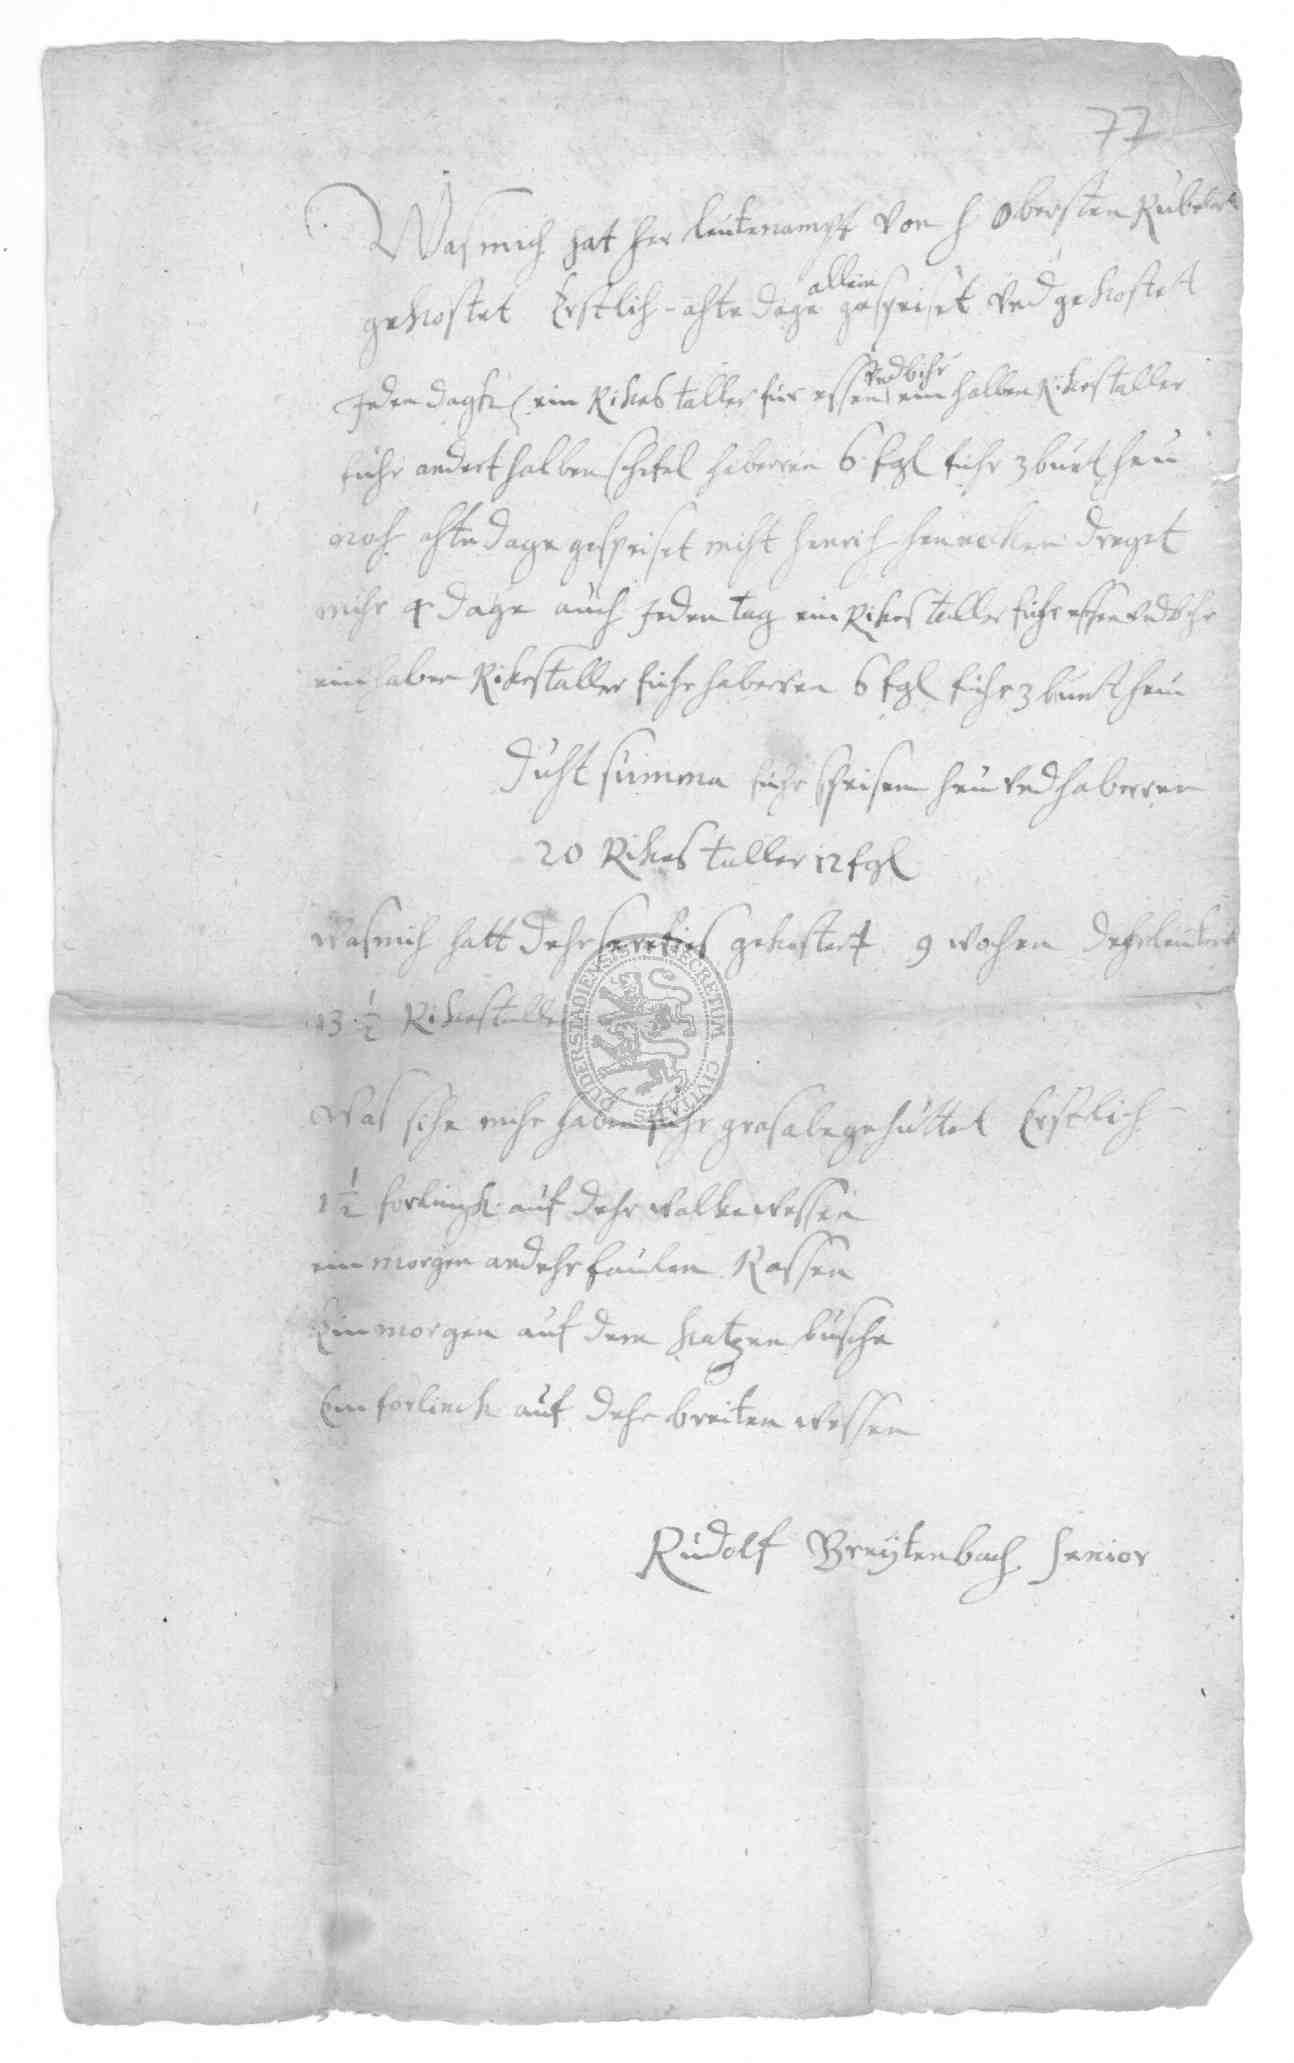 77
Was mich hat her leutenampt von h obersten Rubelant
gekostet Erstlich - achte dage allein gespeiset vnd gekostet
Jeden dagk ein Rikes taller fur essen vnd bihr ein halben Rikestaller
fuhr andert halben schefel haberen 6 fgl fuhr 3 bunt heu
noch achte dage gespeiset miht henrich hennecken dreget
mihr 4 dage auch Jeden tag ein Rikes taller fuhr essen vnd bihr
ein halben Rikestaller fuhr haberen 6 fgl fuhr 3 bunt heu
Duht summa fuhr speisen heu vnd haberen
20 Rikes taller 12 fgl
was mich hatt dehr gekostett 9 wochen
13 1/2 Rikestaller
Was sihe mihr haben fuhr gras abgehuttet Erstlich -
1 1/2 forlingk auf dehr walkewessen
ein morgen an dehr faulen Rassen
Ein morgen auf dem katzen busche
Ein forlinck auf dehr breiten wessen
Rudolf Breytenbach Senior
DUDERSTADIENSIS SECRETUM CIVITATIS